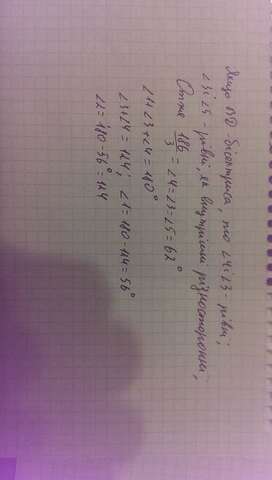 Якщо BD - бісектриса, то ∠4 і ∠3 - рівні;
∠3 і ∠5 - рівні, як внутрішні різносторонні,
Отже 186/3 = ∠4 = ∠3 = ∠5 = 62°
∠1 + ∠3 + ∠4 = 180°
∠3 + ∠4 = 124; ∠1 = 180 - 124 = 56°
∠2 = 180 - 56° = 124